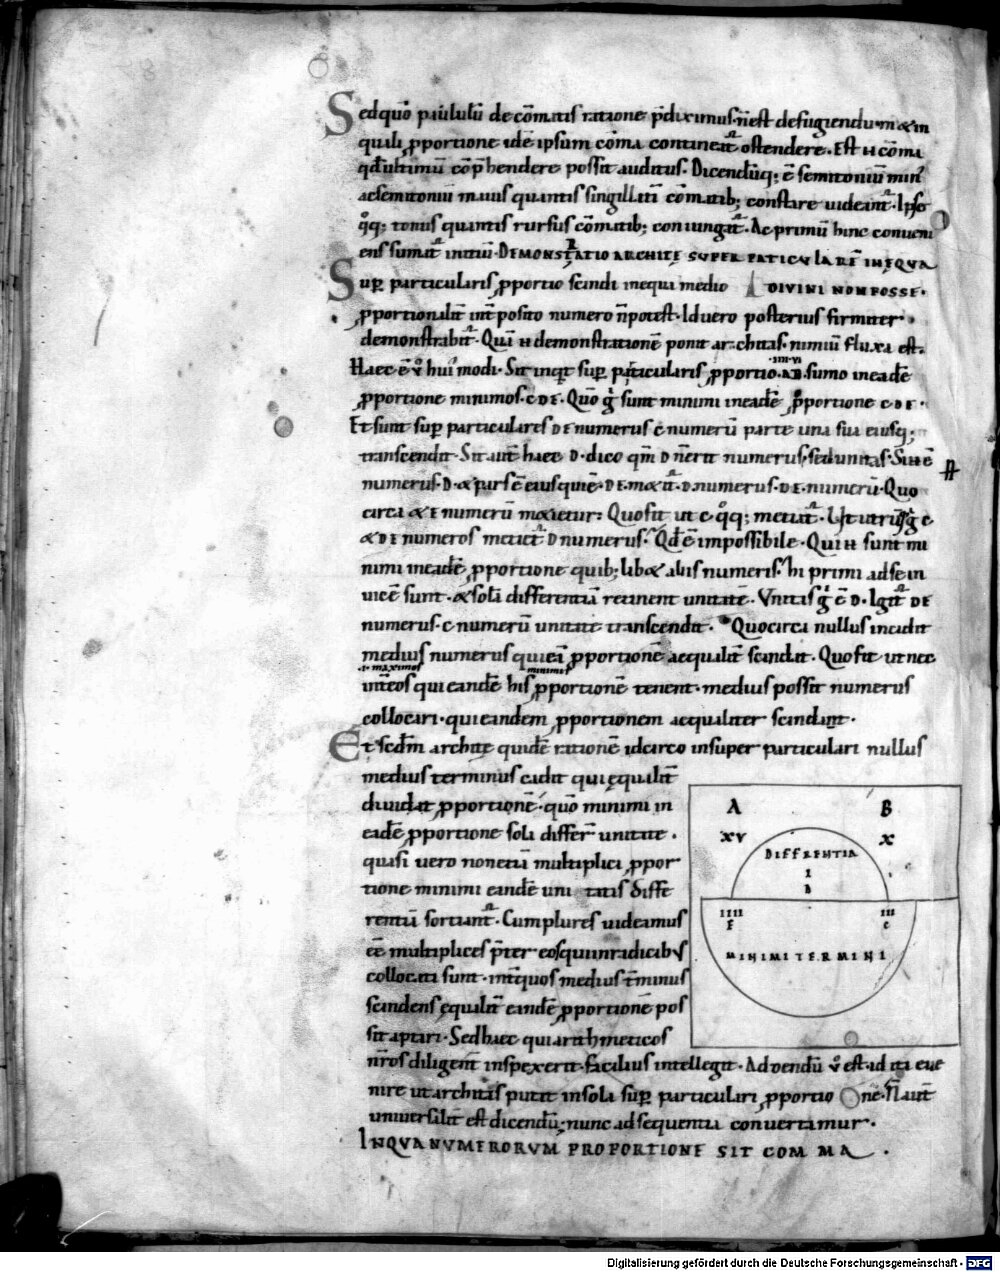 Sedquō paululū de cōmatis ratione p̄diximus. n̄ est defugiendum & in
quali ꝓportione idē ipsum cōma contineat᷑ ostendere. Est n̄ cōma
qd̄ ultimū cōp̄hendere possit auditus. Dicendūq; ē semitoniū min᷑
ac semitoniū maius quantis singillati cōmatib; constare uideant᷑. Ipse
q̊q; tonus quantis rursus cōmatib; coniungat᷑. Ac primū hinc conueni
ens sumat᷑ initiū. DEMONSTRATIO ARCHITĘ SUPER PATICULARĒ IN ĘQUA
Suꝑ particularis ꝓportio scindi inequa medio DIVIDI NON POSSE.
ꝓportionalit᷑ int᷑posito numero n̄ potest. Id uero posterius firmiter
demonstrabit᷑. Quā n̄ demonstrationē ponit architas. nimiū fluxa est.
Haec ē v̊ hui᷑ modi. Sit inqt suꝑ paticularis ꝓportio. A B. sumo in eadē
IIII VI
ꝓportione minimos. C D E. Quō g̊ sunt minimi in eadē ꝓportione C D E.
Et sunt suꝑ particulares D E numerus C numerū parte una sua eiusq;
transcendit. Sit aut̄ haec D. dico qm̄ D n̄ erit numerus. sed unitas. Si n̄ ē
numerus D. & pars ē eius qui ē D E. metit᷑ D. numerus. D E. numerū. Quo
circa & E numerū metietur. Quo fit ut C q̊q; metiat᷑. Ut utrūsq; g̊ C
& D E numeros metiet᷑ D numerus. Qd̄ ē impossibile. Qui n̄ sunt mi
nimi in eadē ꝓportione quib; lib& aliis numeris. hi primi ad se in
uicē sunt. & solā differentiā retinent unitatē. Unitas g̊ ē D. Igit᷑ DE
numerus. C numerū unitate transcendit. Quocirca nullus incidit
medius numerus qui eā ꝓportionē aequalit᷑ scindit. Quo fit ut nec
.i. maximos minimis
int᷑ eos qui eandē his ꝓportionē tenent. medius possit numerus
collocari. qui eandem ꝓportionem aequaliter scindant.
Et scdm̄ architę quidē rationē idcirco in super particulari nullus
medius terminus cadit qui ęqualit᷑
diuidat ꝓportionē. quō minimi in
eadē ꝓportione sola differ᷑ unitate.
quasi uero non etiā multiplici ꝓpor
tione minimi eandē unitatis diffe
rentiā sortiant᷑. Cum plures uideamus
eē multiplices p̄ter eos qui in radicibus
collocati sunt. int᷑ quos medius t̄minus
scindens ęqualit᷑ eandē ꝓportionē pos
sit aptari. Sed haec qui arithmeticos
nr̄os diligent᷑ inspexerit. facilius intellegit. Addendū v̊ est. id ita eue
nire ut architas putat in sola suꝑ particulari ꝓportione. N̄ aut̄
uniuersalit᷑ est dicendū; nunc ad sequentia conuertamur.
INQUA NUMERORUM PROPORTIONE SIT COM MA.
A B
XV X
DIFFRENTIA
I
D
IIII III
F C
MINIMI TERMINI
Digitalisierung gefördert durch die Deutsche Forschungsgemeinschaft - DFG